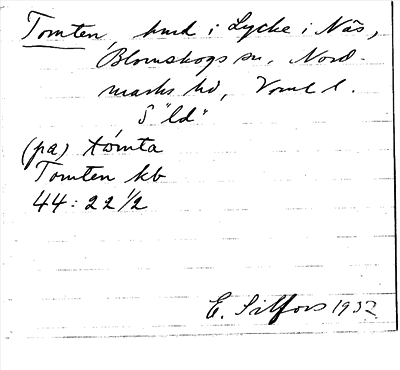 Tomten, hmd i Lycke i Näs,
Blomskogs sn, Nord-
marks hd, Verml l.
S "ld"
(pa) tómta
Tomten kb
44: 22 1/2
E. Silfors 1932